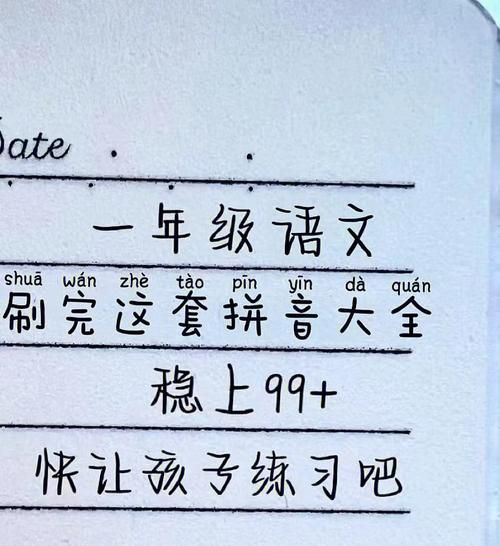 Date
一年级语文
shuā wán zhè tào pīn yīn dà quán
刷完这套拼音大全
稳上99+
快让孩子练习吧